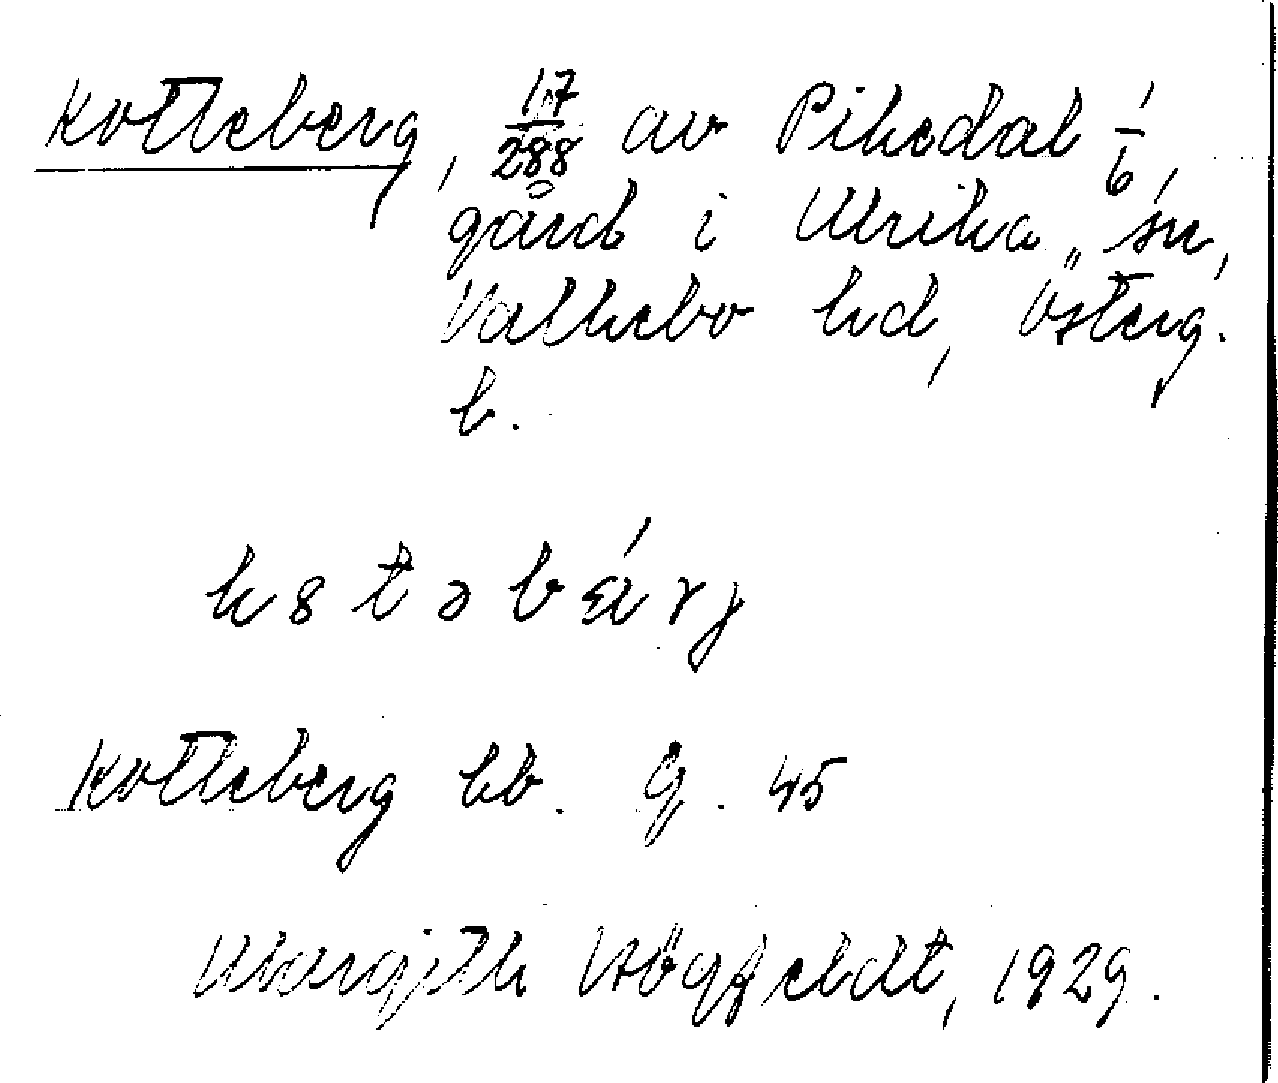 Kotteberg, 17/288 av Pikedal 1/6,
gård i Ulrika sn,
Valkebo hd, Österg.
l.
k8təbǽrj
Kotteberg bb. G. 45
Margith Högfeldt, 1929.